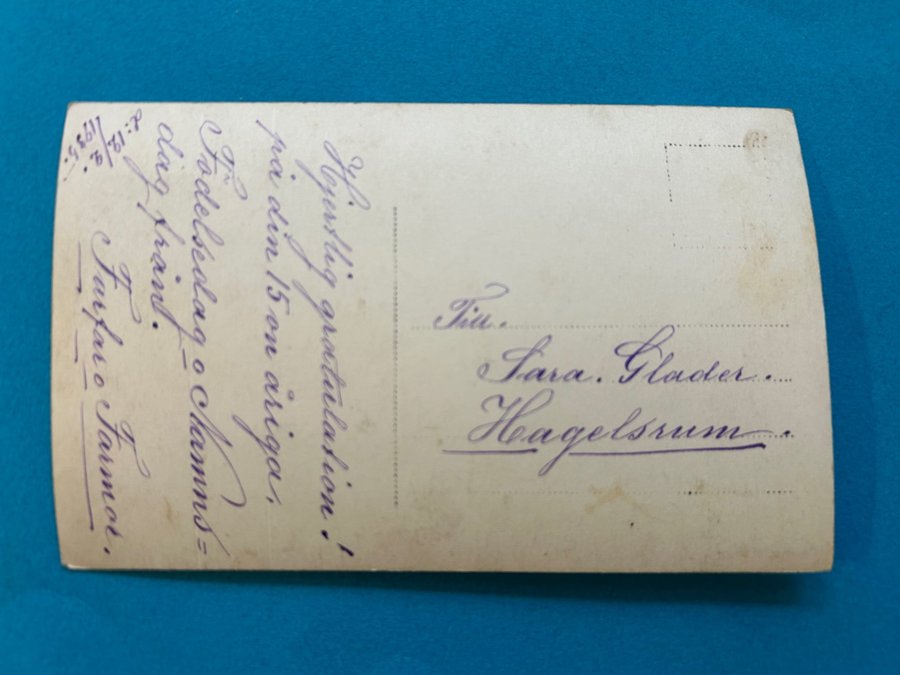 Hjertlig gratulation!
på din 15 on åriga.
Födelsedag o Namns=
dag, från.
Farfar o Farmor.
d: 12/2.
1935.
Till.
Sara. Glader.
Hagelsrum.